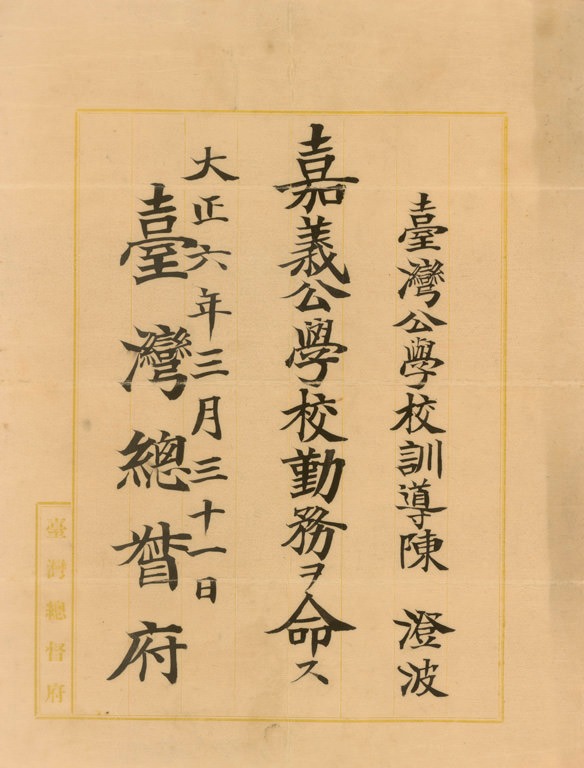 臺灣公學校訓導陳 澄波
嘉義公學校勤務ヲ命ス
大正六年三月三十一日
臺灣總督府
臺灣總督府